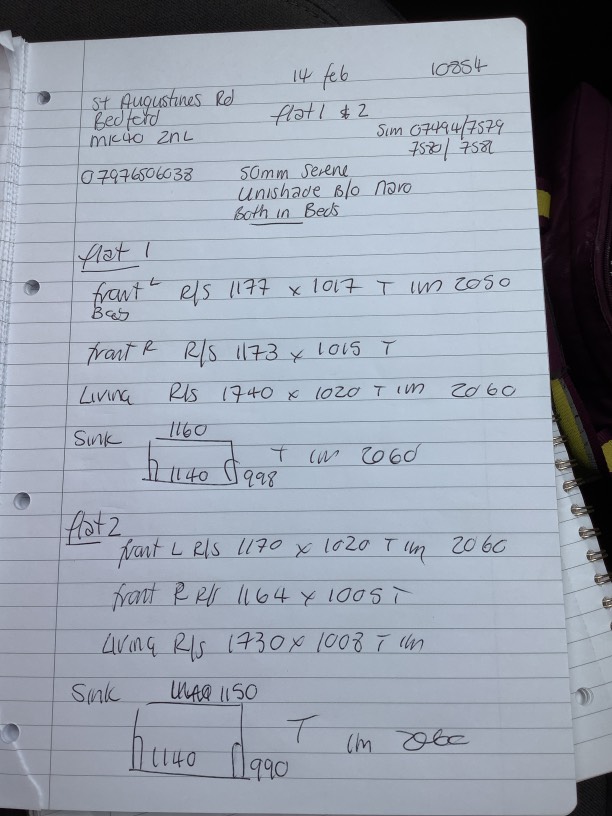 14 feb 10854
St Augustines Rd
Bedford flat 1 & 2
MK40 2NL Sim 07494/7579
7580/7581
07976506038 50mm Serene
Unishade B/o Naro
Both in Beds
flat 1
front L R/S 1177 x 1017 T im 2050
Bed
front R R/S 1173 x 1015 T
Living R/S 1740 x 1020 T im 2060
Sink 1160
1140 998 T im 2060
flat 2
front L R/S 1170 x 1020 T im 2060
front R R/S 1164 x 1005 T
Living R/S 1730 x 1008 T im
Sink 1150
1140 990 T im 2060